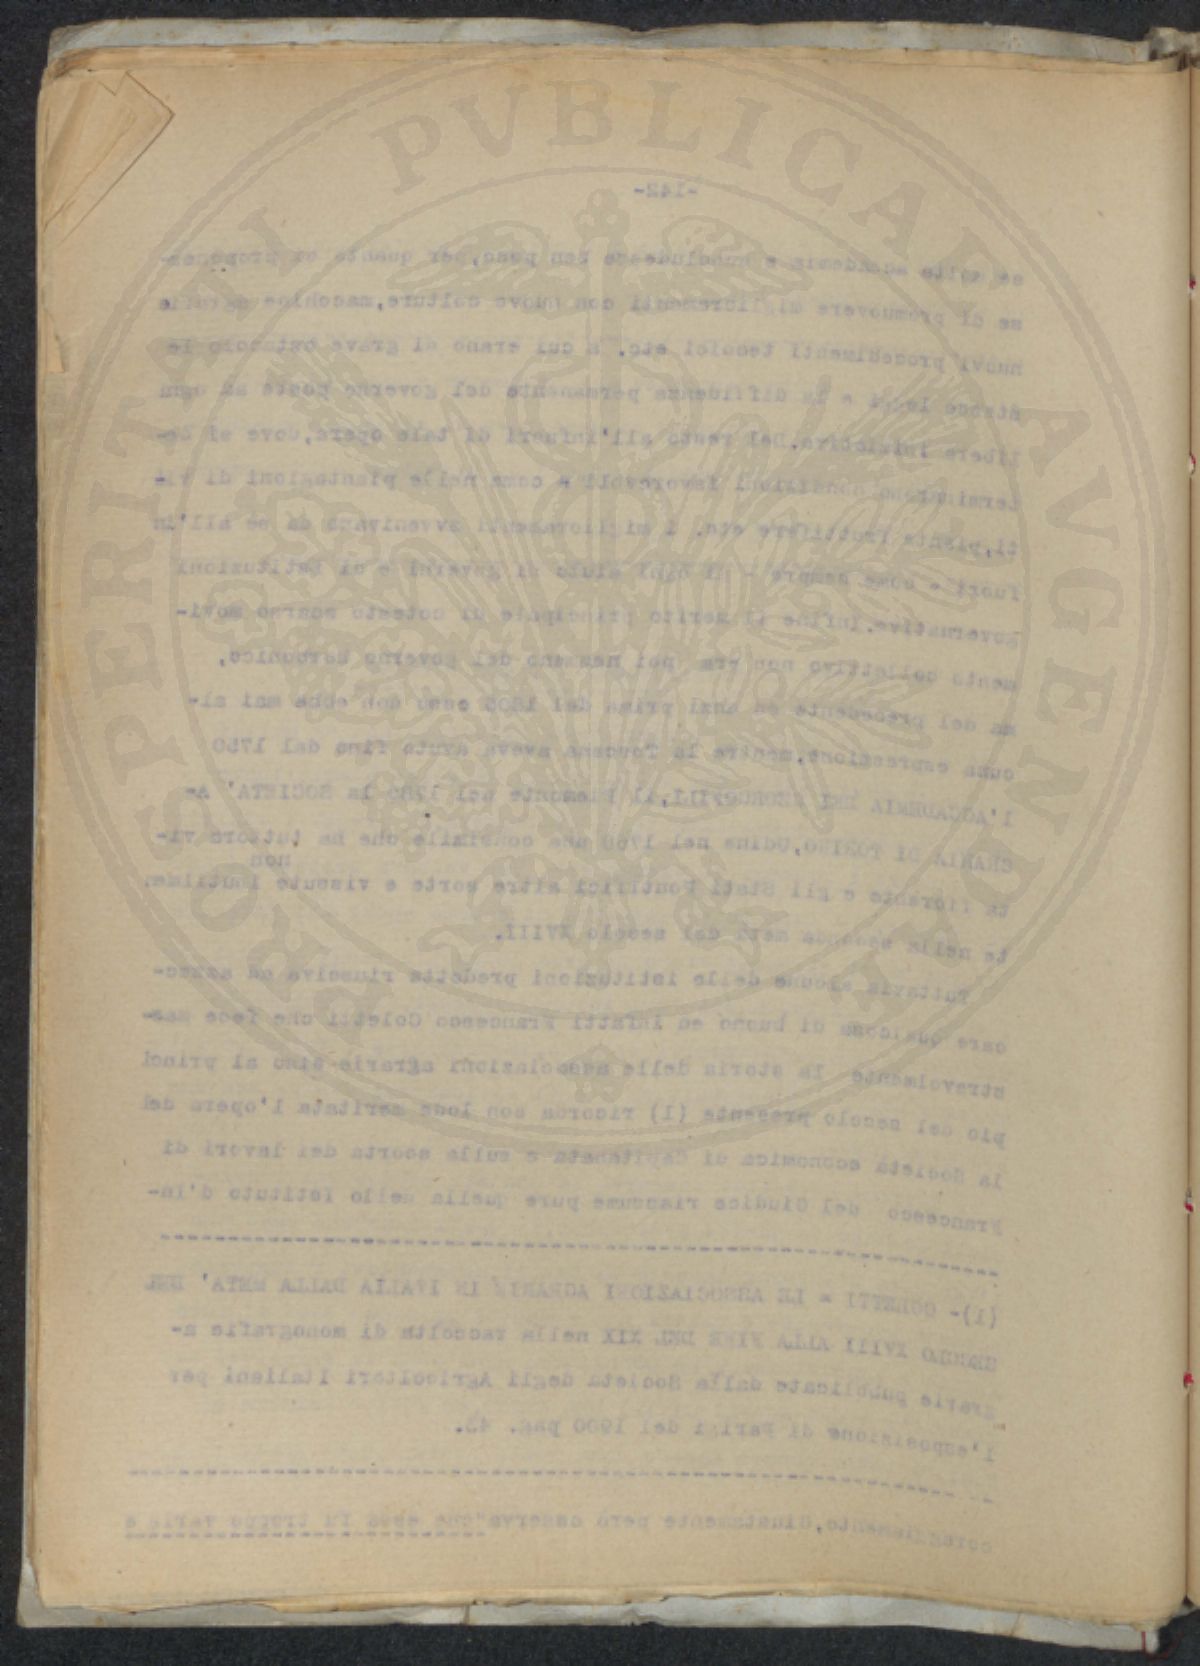 PROSPERITATI PVBLICAE AVGENDAE
-142-
se molte accademie e concludesse ben poco, per quanto si propones-
se di promuovere miglioramenti con nuove colture, macchine agrarie
nuovi procedimenti tecnici etc. a cui erano di grave ostacolo le
leggi e la diffidenza permanente del governo posta ad ogni
libera iniziativa. Del resto all'infuori di tale opera, dove si de-
terminarono condizioni favorevoli e come nelle piantagioni di vi-
ti, piante fruttifere etc. i miglioramenti avvenivano da sè all'in
fuori - come sempre - di ogni aiuto di governi e di istituzioni
governative. Infine il merito principale di cotesto scarso movi-
mento collettivo non era poi nemmeno del governo borbonico,
ma del precedente ed anzi prima del 1806 esso non ebbe mai al-
cuna espressione, mentre la Toscana aveva avuto fino dal 1750
l'ACCADEMIA DEI GEORGOFILI, il Piemonte nel 1785 la SOCIETA' A-
GRARIA DI TORINO, Udine nel 1760 una consimile che ha tuttora vi-
non
ta fiorente e gli Stati Pontifici altre sorte e vissute inutilmen
te nella seconda metà del secolo XVIII.
Tuttavia alcune delle istituzioni predette riusciva ad attec-
care qualcosa di buono ed infatti Francesco Coletti che fece mae-
stravolmente la storia delle associazioni agrarie sino al princi
pio del secolo presente (1) ricorda con lode meritata l'opera del
la Società economica di Capitanata e sulla scorta dei lavori di
Francesco del Giudice riassume pure quella dello Istituto d'in-
(1)- COLETTI - LE ASSOCIAZIONI AGRARIE IN ITALIA DALLA META' DEL
SECOLO XVIII ALLA FINE DEL XIX nella raccolta di monografie a-
grarie pubblicate dalla Società degli Agricoltori Italiani per
l'esposizione di Parigi del 1900 pag. 43.
coraggiamento, Giustamente però osserva "che essa fu troppo varia e